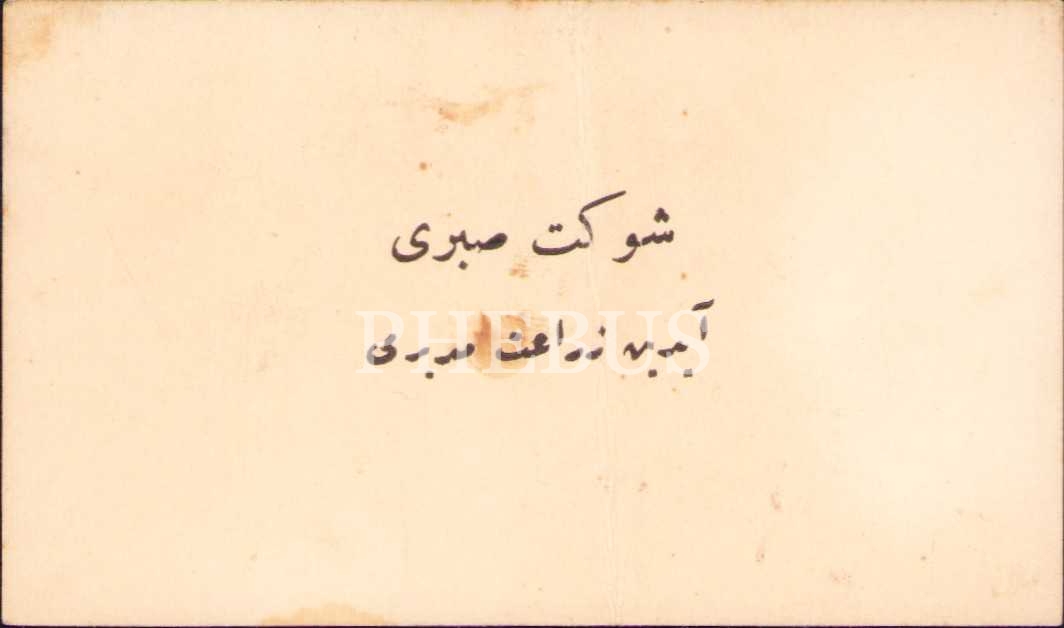 شوكت صبری
آیدین زراعت مدیری
PHEBUS